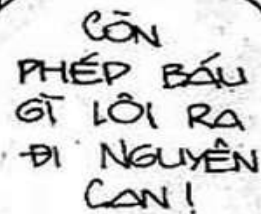 CÒN
PHÉP BÁU
GÌ LÔI RA
ĐI NGUYÊN
CAN!